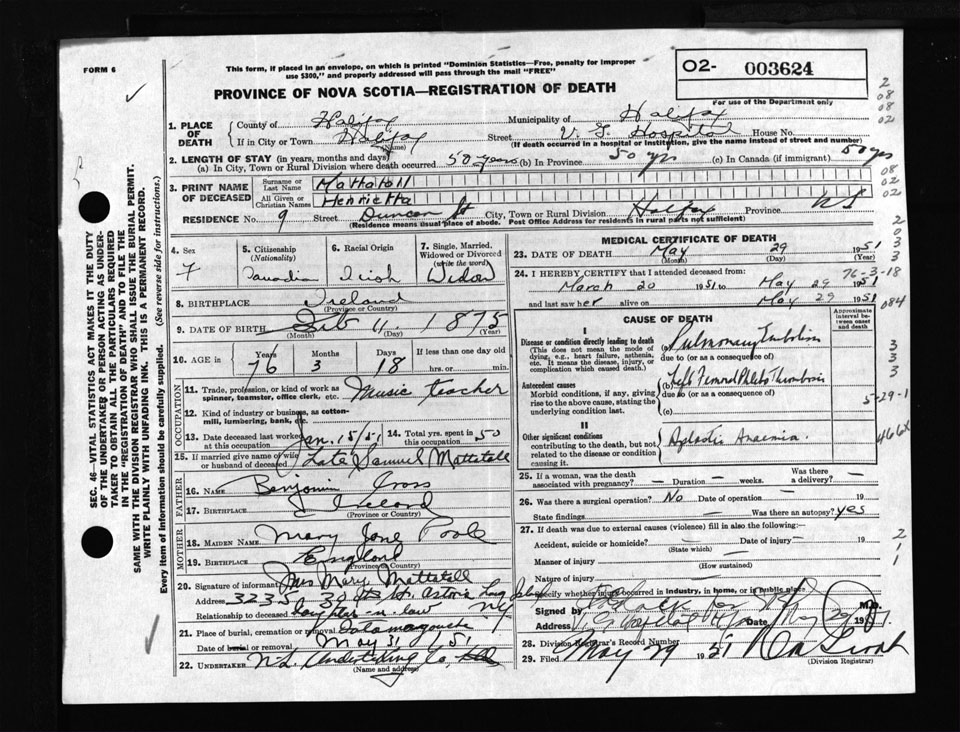 FORM 6
This form, if placed in an envelope, on which is printed "Dominion Statistics—Free, penalty for improper
use $300," and properly addressed will pass through the mail "FREE"
PROVINCE OF NOVA SCOTIA—REGISTRATION OF DEATH
O2- 003624
For use of the Department only
2
08
02
1. PLACE OF DEATH
County of Halifax Municipality of Halifax
If in City or Town Halifax Street V. G. Hospital House No.
(Name) (If death occurred in a hospital or institution, give the name instead of street and number)
2. LENGTH OF STAY (in years, months and days)
(a) In City, Town or Rural Division where death occurred 50 years (b) In Province 50 yrs (c) In Canada (if immigrant) 50 yrs
08
02
02
3. PRINT NAME OF DECEASED
Surname or Last Name Mattatall
All Given or Christian Names Henrietta
RESIDENCE No. 9 Street Duncan St City, Town or Rural Division Halifax Province N S
(Residence means usual place of abode. Post Office Address for residents in rural parts not sufficient)
4. Sex
F
5. Citizenship
(Nationality)
Canadian
6. Racial Origin
Irish
7. Single, Married, Widowed or Divorced
(write the word)
Widow
8. BIRTHPLACE Ireland
(Province or Country)
9. DATE OF BIRTH Feb 11 1875
(Month) (Day) (Year)
10. AGE in Years Months Days If less than one day old
76 3 18 hrs. or min.
OCCUPATION
11. Trade, profession, or kind of work as
spinner, teamster, office clerk, etc. Music teacher
12. Kind of industry or business, as cotton-
mill, lumbering, bank, etc.
13. Date deceased last worked at this occupation Jan. 15/51 14. Total yrs. spent in this occupation 50
15. If married give name of wife or husband of deceased Late Samuel Mattatall
FATHER
16. NAME Benjamin Cross
17. BIRTHPLACE Ireland
(Province or Country)
MOTHER
18. MAIDEN NAME Mary Jane Poole
19. BIRTHPLACE England
(Province or Country)
20. Signature of informant Mrs Mary Mattatall
Address 3235 30 St. Astoria Long Island NY
Relationship to deceased daughter-in-law
21. Place of burial, cremation or removal Tatamagouche
Date of burial or removal May 31/51
22. UNDERTAKER N.S. Undertaking Co.
(Name and address)
MEDICAL CERTIFICATE OF DEATH
23. DATE OF DEATH May 29 1951
(Month) (Day)
24. I HEREBY CERTIFY that I attended deceased from: 76-3-18
March 20 1951 to May 29 1951
and last saw her alive on May 29 1951
084
CAUSE OF DEATH
Approximate interval between onset and death
I
Disease or condition directly leading to death
(This does not mean the mode of dying, e.g., heart failure, asthenia, etc. It means the disease, injury, or complication which caused death.)
(a) Pulmonary Embolism
due to (or as a consequence of)
Antecedent causes
Morbid conditions, if any, giving rise to the above cause, stating the underlying condition last.
(b) Left Femoral Phlebo Thrombosis
due to (or as a consequence of)
(c)
5-29-1
II
Other significant conditions
contributing to the death, but not related to the disease or condition causing it.
Aplastic Anaemia.
25. If a woman, was the death associated with pregnancy? — Duration — weeks. Was there a delivery? —
26. Was there a surgical operation? No Date of operation — 19
State findings Was there an autopsy? yes
27. If death was due to external causes (violence) fill in also the following:—
Accident, suicide or homicide? — Date of injury — 19
(State which)
Manner of injury
(How sustained)
Nature of injury
Specify whether injury occurred in industry, in home, or in public place
Signed by M.D.
Address Date May 29 1951
28. Division Registrar's Record Number
29. Filed May 29 1951
(Division Registrar)
SEC. 46—VITAL STATISTICS ACT MAKES IT THE DUTY
OF THE UNDERTAKER OR PERSON ACTING AS UNDER-
TAKER TO OBTAIN ALL THE PARTICULARS REQUIRED
IN THE "REGISTRATION OF DEATH" AND TO FILE THE
SAME WITH THE DIVISION REGISTRAR WHO SHALL ISSUE THE BURIAL PERMIT.
WRITE PLAINLY WITH UNFADING INK. THIS IS A PERMANENT RECORD.
Every item of information should be carefully supplied. (See reverse side for instructions.)